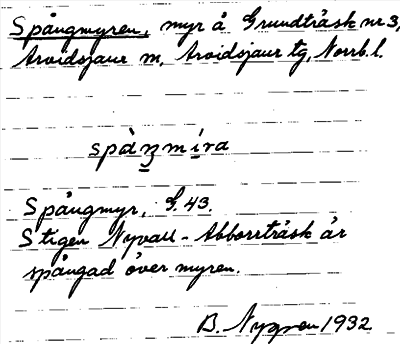 Spångmyren, myr å Grundträsk nr 3,
Arvidsjaur sn, Arvidsjaur tg, Norrb. l.
spàŋmi̲ra
Spångmyr, G. 43.
Stigen Nyvall - Abborrträsk är
spångad över myren.
B. Nygren 1932